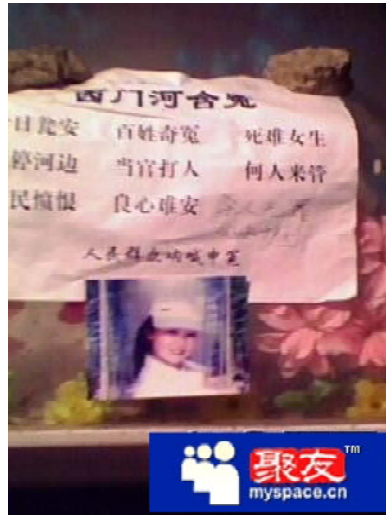 西门河含冤
日瓮安 百姓奇冤 死难女生
停河边 当官打人 何人来管
民愤恨 良心难安
人民群众呐喊申冤
聚友™
myspace.cn